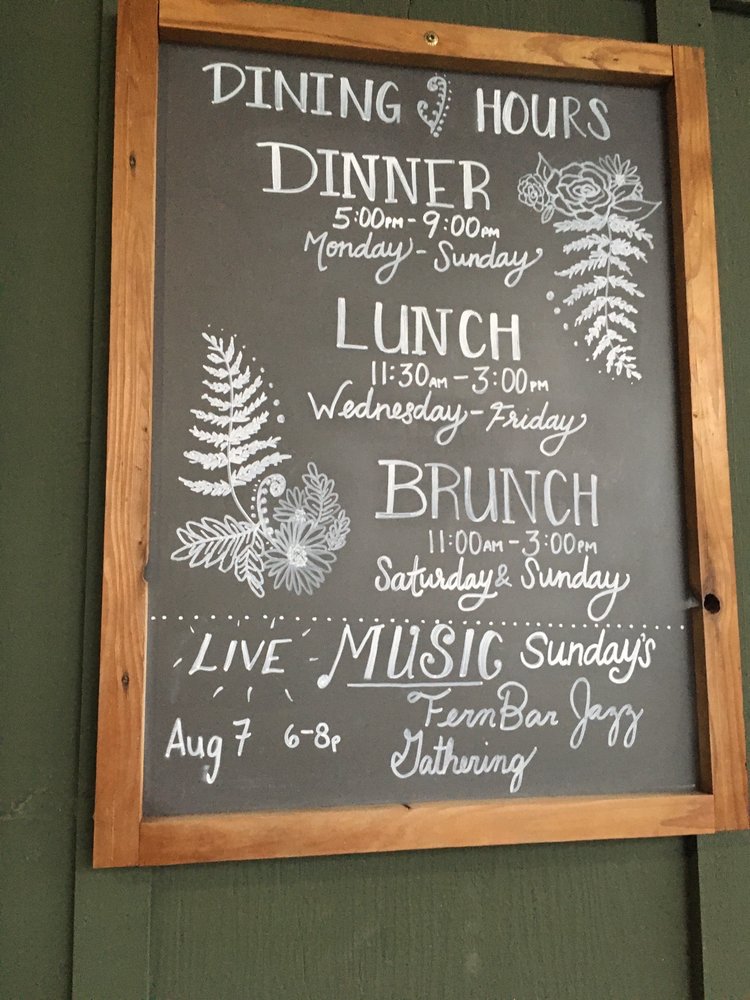 DINING HOURS
DINNER
5:00PM - 9:00PM
Monday - Sunday
LUNCH
11:30AM - 3:00PM
Wednesday - Friday
BRUNCH
11:00AM - 3:00PM
Saturday & Sunday
LIVE MUSIC Sunday's
Aug 7 6-8P FernBar Jazz
Gathering